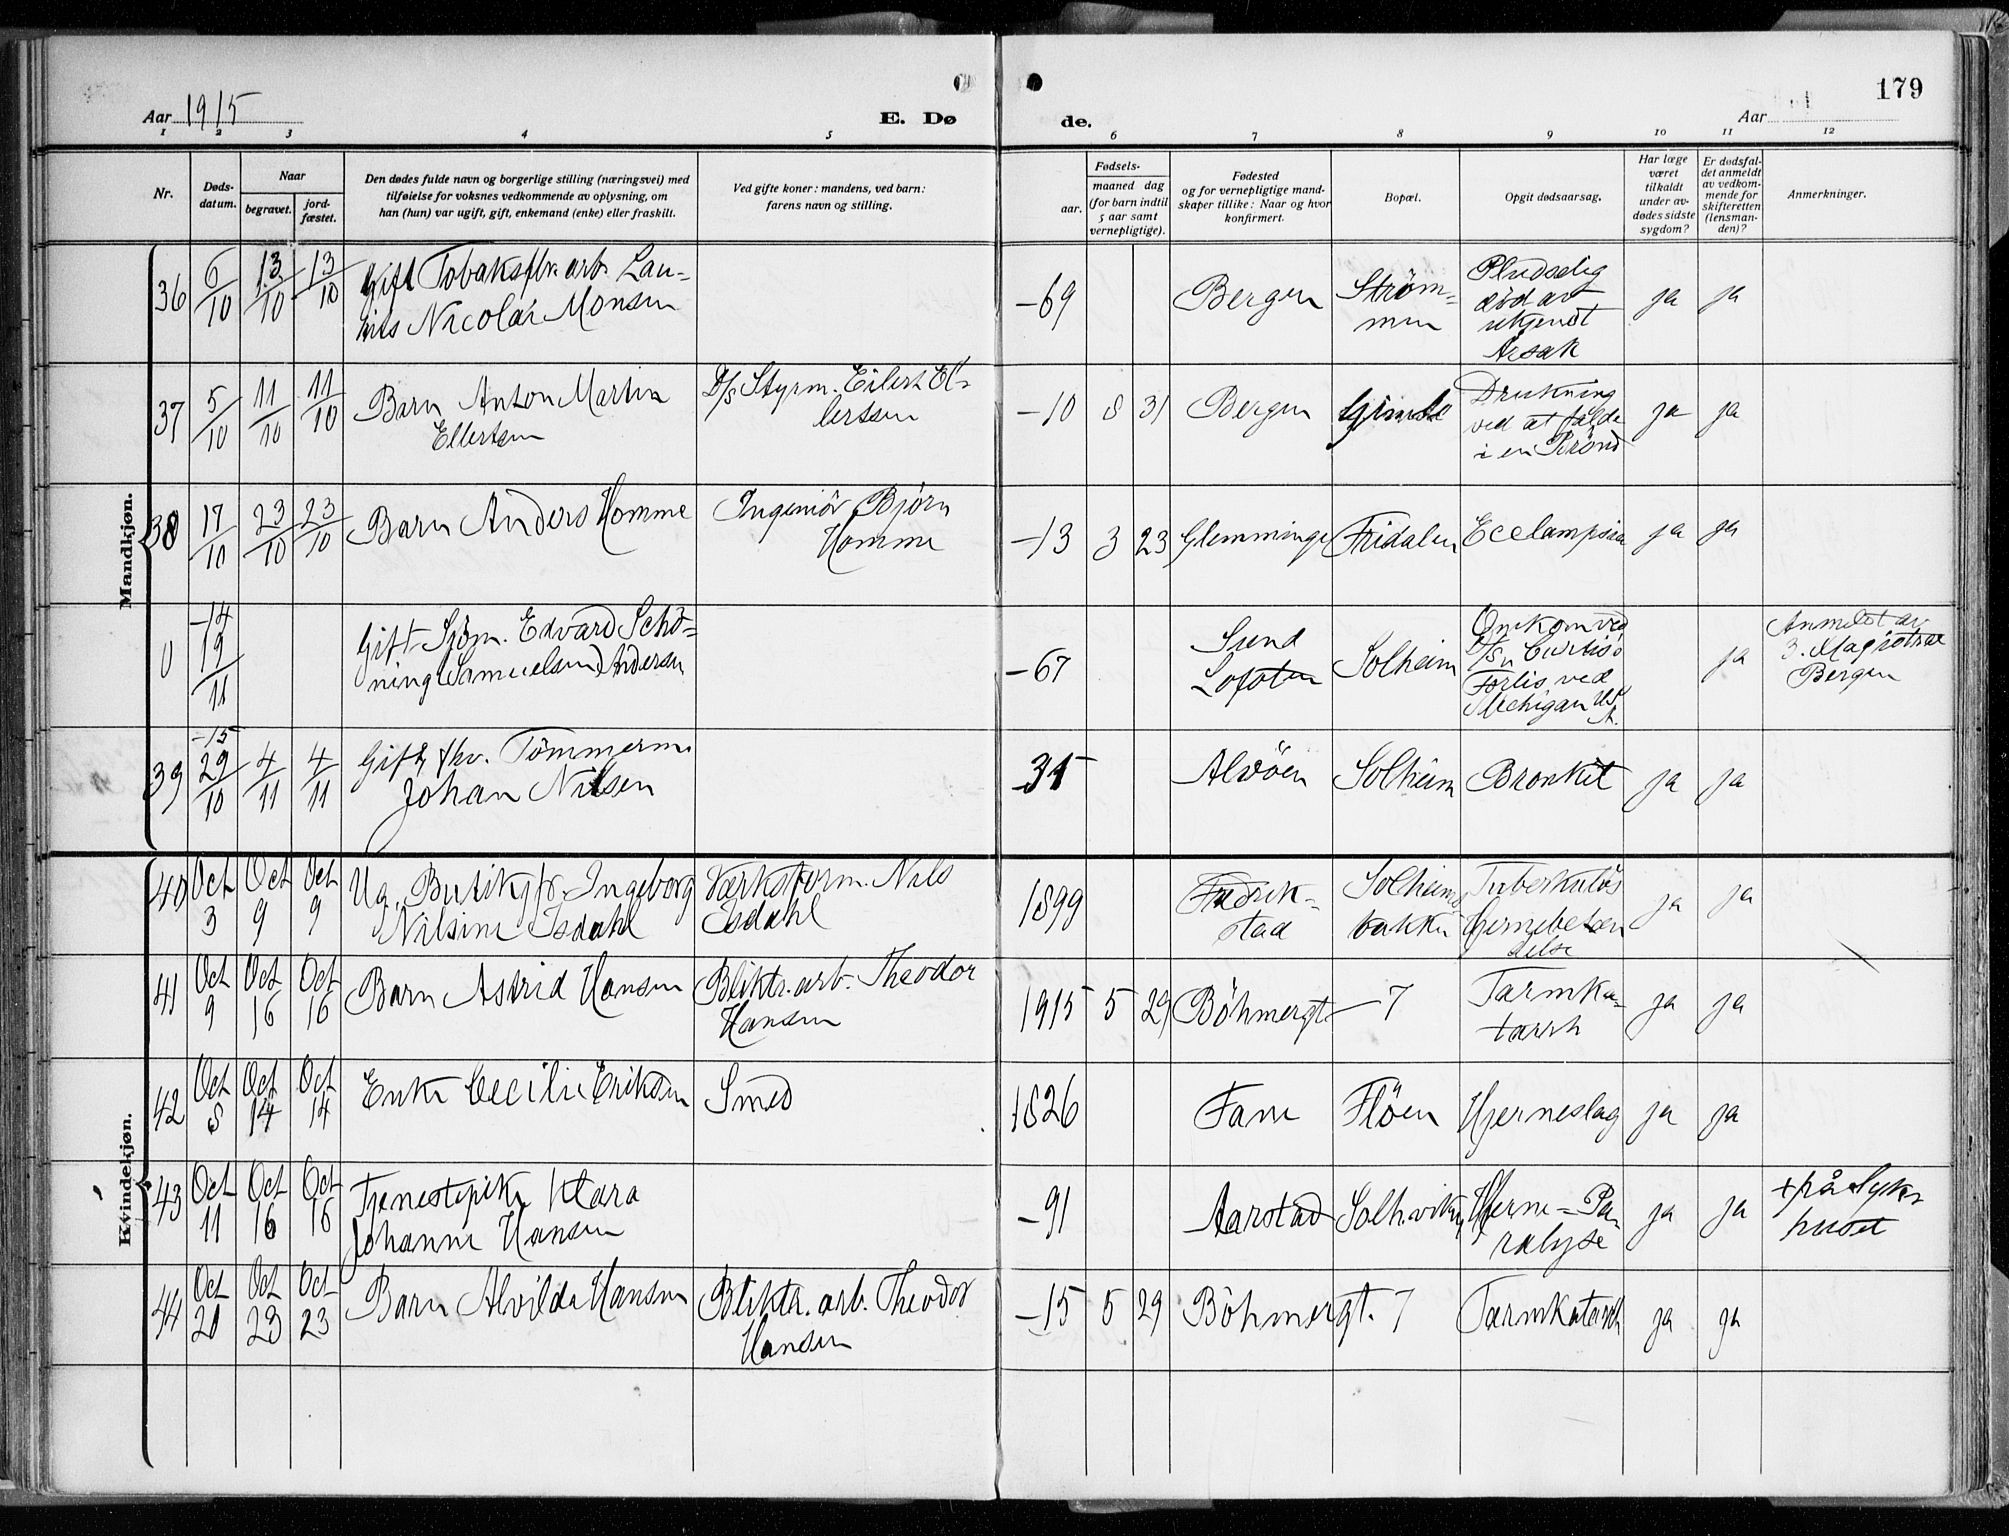 179
Aar 1915
E. Dø
de.
Aar
1 2 3 4 5 6 7 8 9 10 11 12
Nr.
Døds-
datum.
Naar
begravet.
jord-
fæstet.
Den dødes fulde navn og borgerlige stilling (næringsvei) med
tilføielse for voksnes vedkommende av oplysning, om
han (hun) var ugift, gift, enkemand (enke) eller fraskilt.
Ved gifte koner: mandens, ved barn:
farens navn og stilling.
Fødsels-
aar.
maaned dag
(for barn indtil
5 aar samt
vernepligtige).
Fødested
og for vernepligtige mand-
skaper tillike: Naar og hvor
konfirmert.
Bopæl.
Opgit dødsaarsag.
Har læge
været
tilkaldt
under av-
dødes sidste
sygdom?
Er dødsfal-
det anmeldt
av vedkom-
mende for
skifteretten
(lensman-
den)?
Anmerkninger.
Mandkjøn.
36 6/10 13/10 13/10 Gift Tobaksfbr. arb. Lau-
rits Nicolai Monsen
-69 Bergen Strøm-
men
Pludselig
død av
ukjendt
Årsak
ja ja
37 5/10 11/10 11/10 Barn Anton Martin
Ellertsen
D/S Styrm. Eilert El-
lertsen
-10 8 31 Bergen Gimle
Drukning
ved at falde
i en Brønd
ja ja
38 17/10 23/10 23/10 Barn Anders Homme
Ingeniör Björn
Homme
-13 3 23 Glemminge Fridalen Ecclampsia ja ja
0 -14 19/11 Gift Sjöm. Edvard Schö-
ning Samuelsen Andersen
-67 Sund
Lofoten
Solheim
Omkom ved
D/S "Curtis"s
Forlis ved
Michigan US
A.
ja
Anmeldt av
3. Magistrat
Bergen
39 -15 29/10 4/11 4/11 Gift fhv. Tömmerm.
Johan Nilsen
-35 Alvöen Solheim Bronkit ja ja
Kvindekjøn.
40 Oct 3 Oct 9 Oct 9 Ug. Butikjfr. Ingeborg
Nilsine Isdahl
Værksform. Nils
Isdahl
1899 Fredrik-
stad
Solheims
bakken
Tuberkuløs
Hjernebeten
delse
ja ja
41 Oct 9 Oct 16 Oct 16 Barn Astrid Hansen
Bliktr. arb. Theodor
Hansen
1915 5 29 Böhmergt - 7
Tarmka-
tarrh
ja ja
42 Oct 8 Oct 14 Oct 14 Enke Cecilie Eriksen
Smed
1826 Fane Flöen Hjerneslag ja ja
43 Oct 11 Oct 16 Oct 16 Tjenestepike Klara
Johanne Hansen
-91 Aarstad Solh.viken
Hjerne-Pa-
ralyse
ja ja
+ på Syke
huset
44 Oct 20 Oct 23 Oct 23 Barn Alvilda Hansen
Bliktr. arb. Theodor
Hansen
-15 5 29 Böhmergt. 7 Tarmkatarrh ja ja